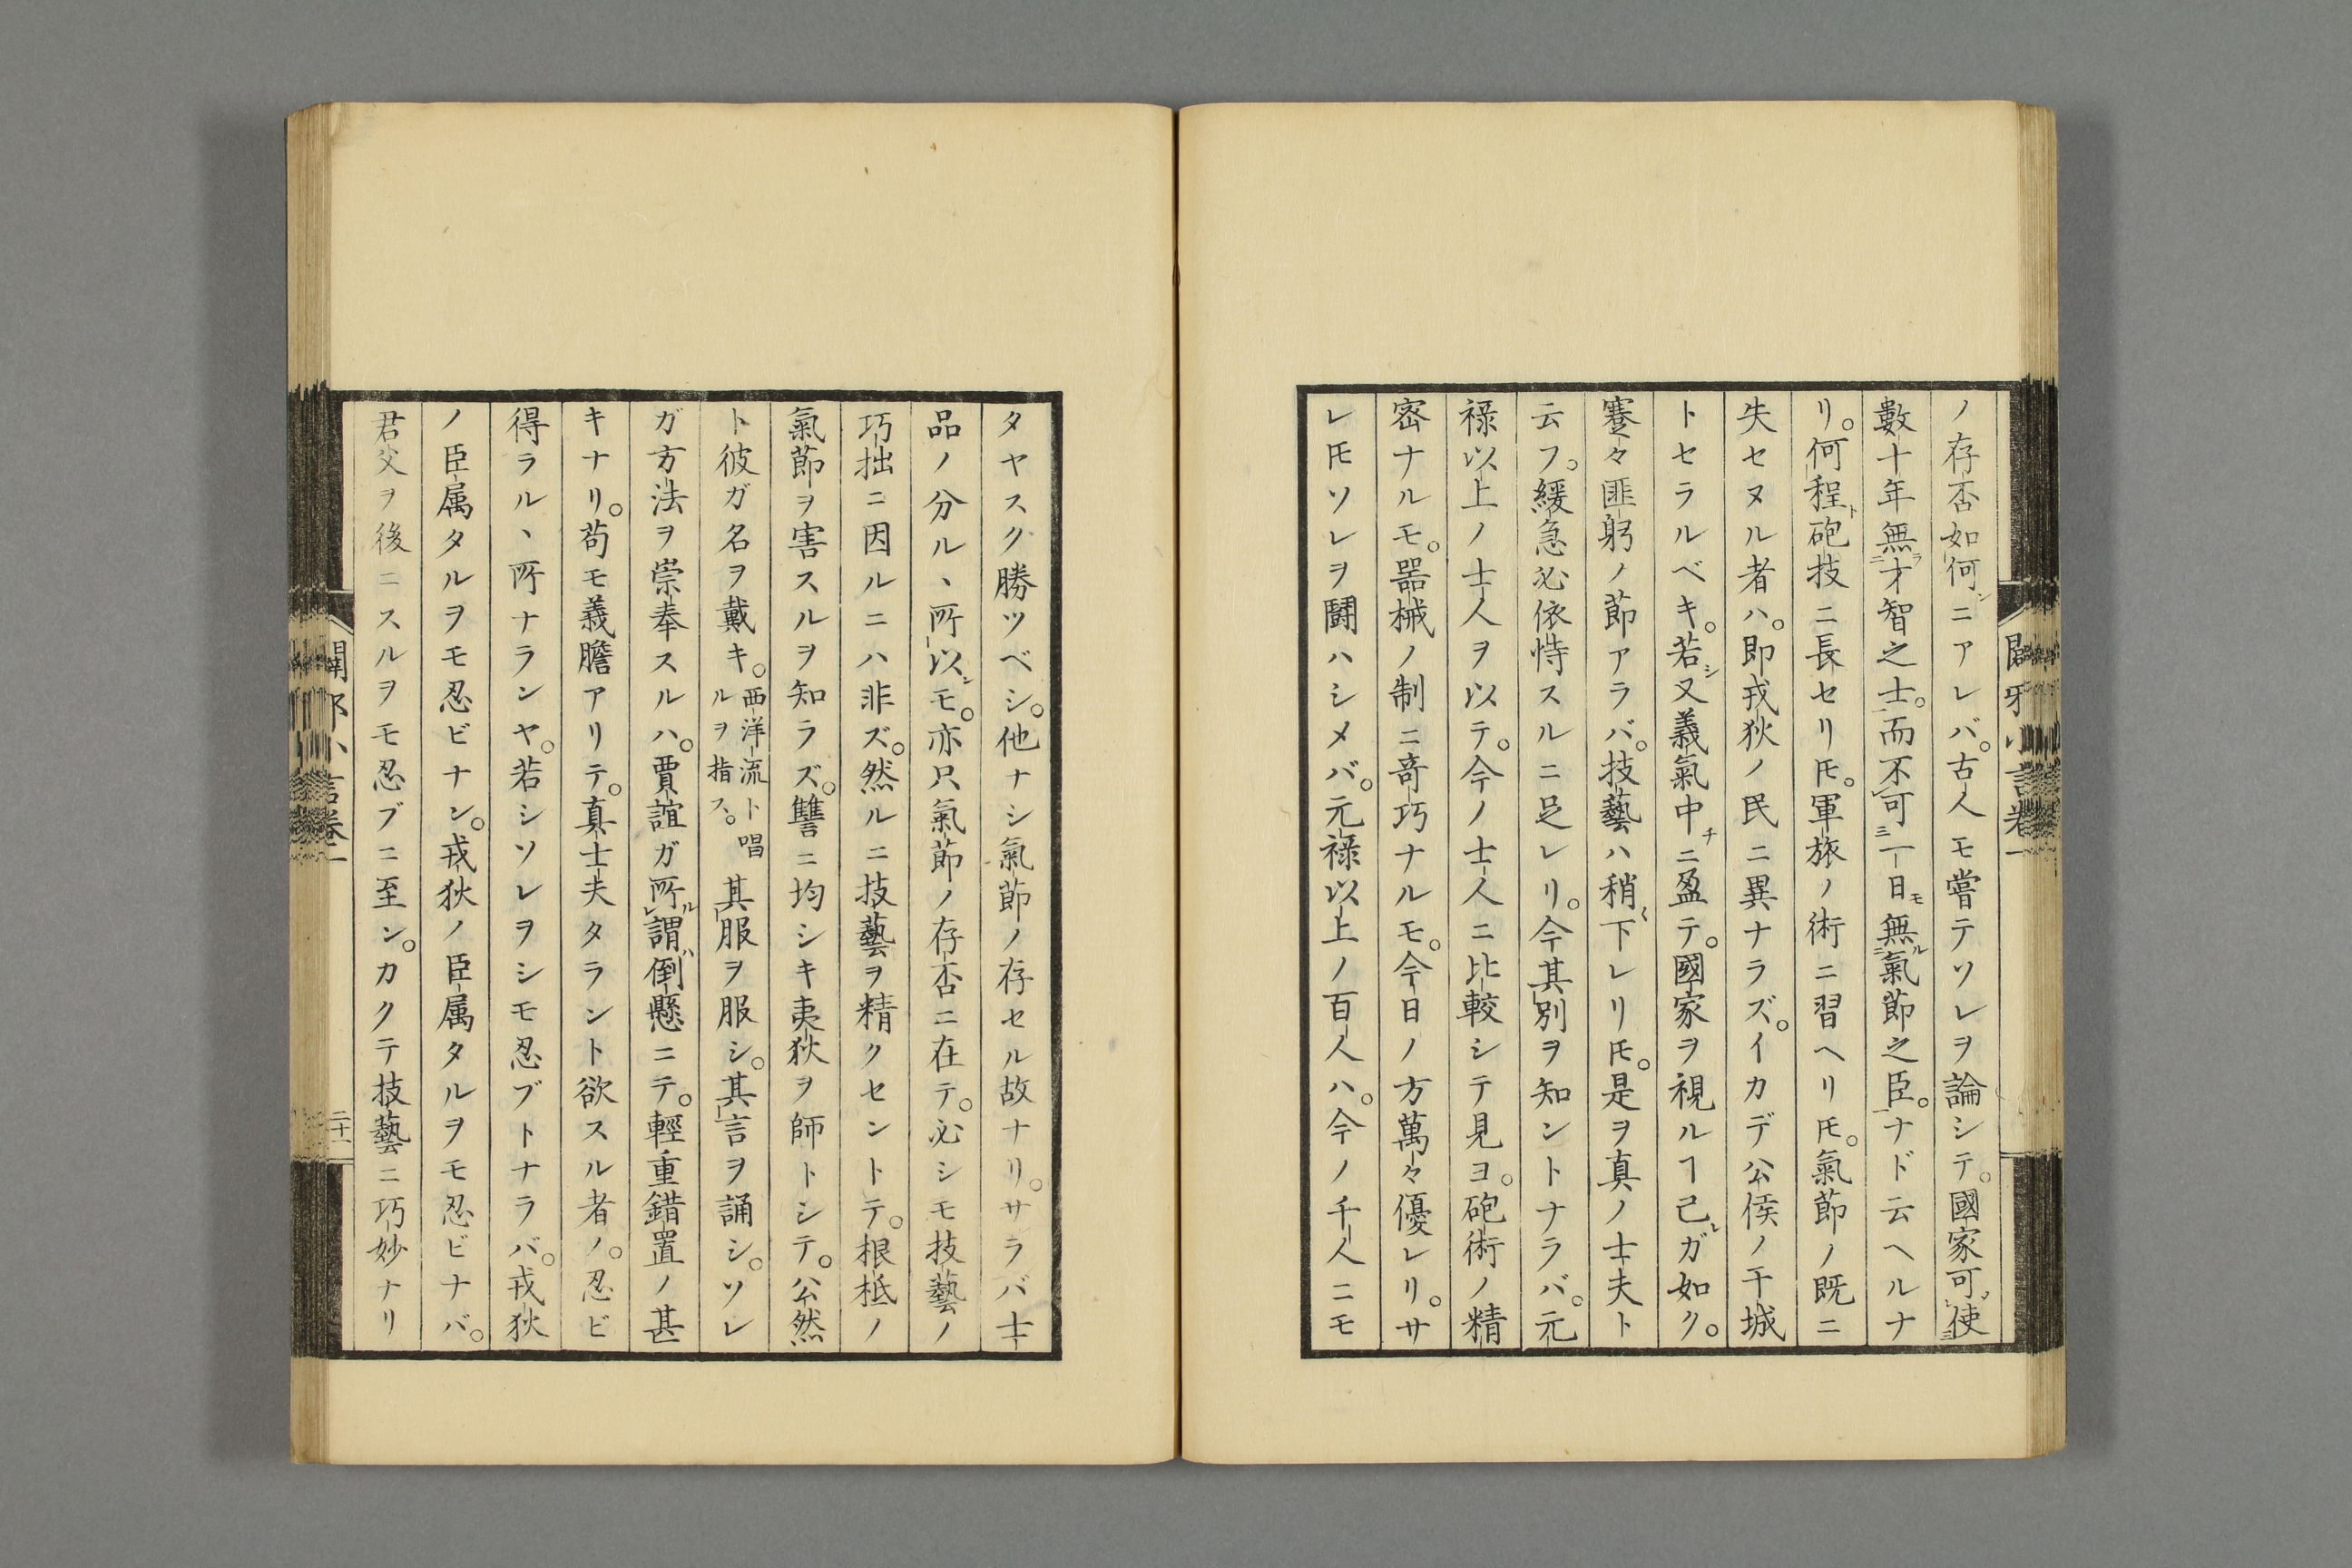 ノ存否如何ニアレバ。古人モ嘗テソレヲ論シテ。國家可使
數十年無才智之士。而不可一日無氣節之臣。ナド云ヘルナ
リ。何程砲技ニ長セリ𪜈。軍旅ノ術ニ習ヘリ𪜈。氣節ノ既ニ
失セヌル者ハ。即戎狄ノ民ニ異ナラズ。イカデ公侯ノ干城
トセラルベキ。若又義氣中ニ盈テ。國家ヲ視ルヿ己ガ如ク。
蹇々匪躬ノ節アラバ。技藝ハ稍下レリ𪜈。是ヲ真ノ士夫ト
云フ。緩急必依恃スルニ足レリ。今其別ヲ知ントナラバ。元
禄以上ノ士人ヲ以テ。今ノ士人ニ比較シテ見ヨ。砲術ノ精
密ナルモ。器械ノ制ニ奇巧ナルモ。今日ノ方萬々優レリ。サ
レ𪜈ソレヲ鬪ハシメバ。元禄以上ノ百人ハ。今ノ千人ニモ
タヤスク勝ツベシ。他ナシ氣節ノ存セル故ナリ。サラバ士
品ノ分ル丶所以モ。亦只氣節ノ存否ニ在テ。必シモ技藝ノ
巧拙ニ因ルニハ非ズ。然ルニ技藝ヲ精クセントテ。根柢ノ
氣節ヲ害スルヲ知ラズ。讐ニ均シキ夷狄ヲ師トシテ。公然
ト彼ガ名ヲ戴キ。西洋流ト唱ルヲ指ス。其服ヲ服シ。其言ヲ誦シ。ソレ
ガ方法ヲ崇奉スルハ。賈誼ガ所謂倒懸ニテ。輕重錯置ノ甚
キナリ。苟モ義膽アリテ。真士夫タラント欲スル者ノ。忍ビ
得ラル丶所ナランヤ。若シソレヲシモ忍ブトナラバ。戎狄
ノ臣属タルヲモ忍ビナン。戎狄ノ臣属タルヲモ忍ビナバ。
君父ヲ後ニスルヲモ忍ブニ至ン。カクテ技藝ニ巧妙ナリ
闢邪小言卷一
二十一